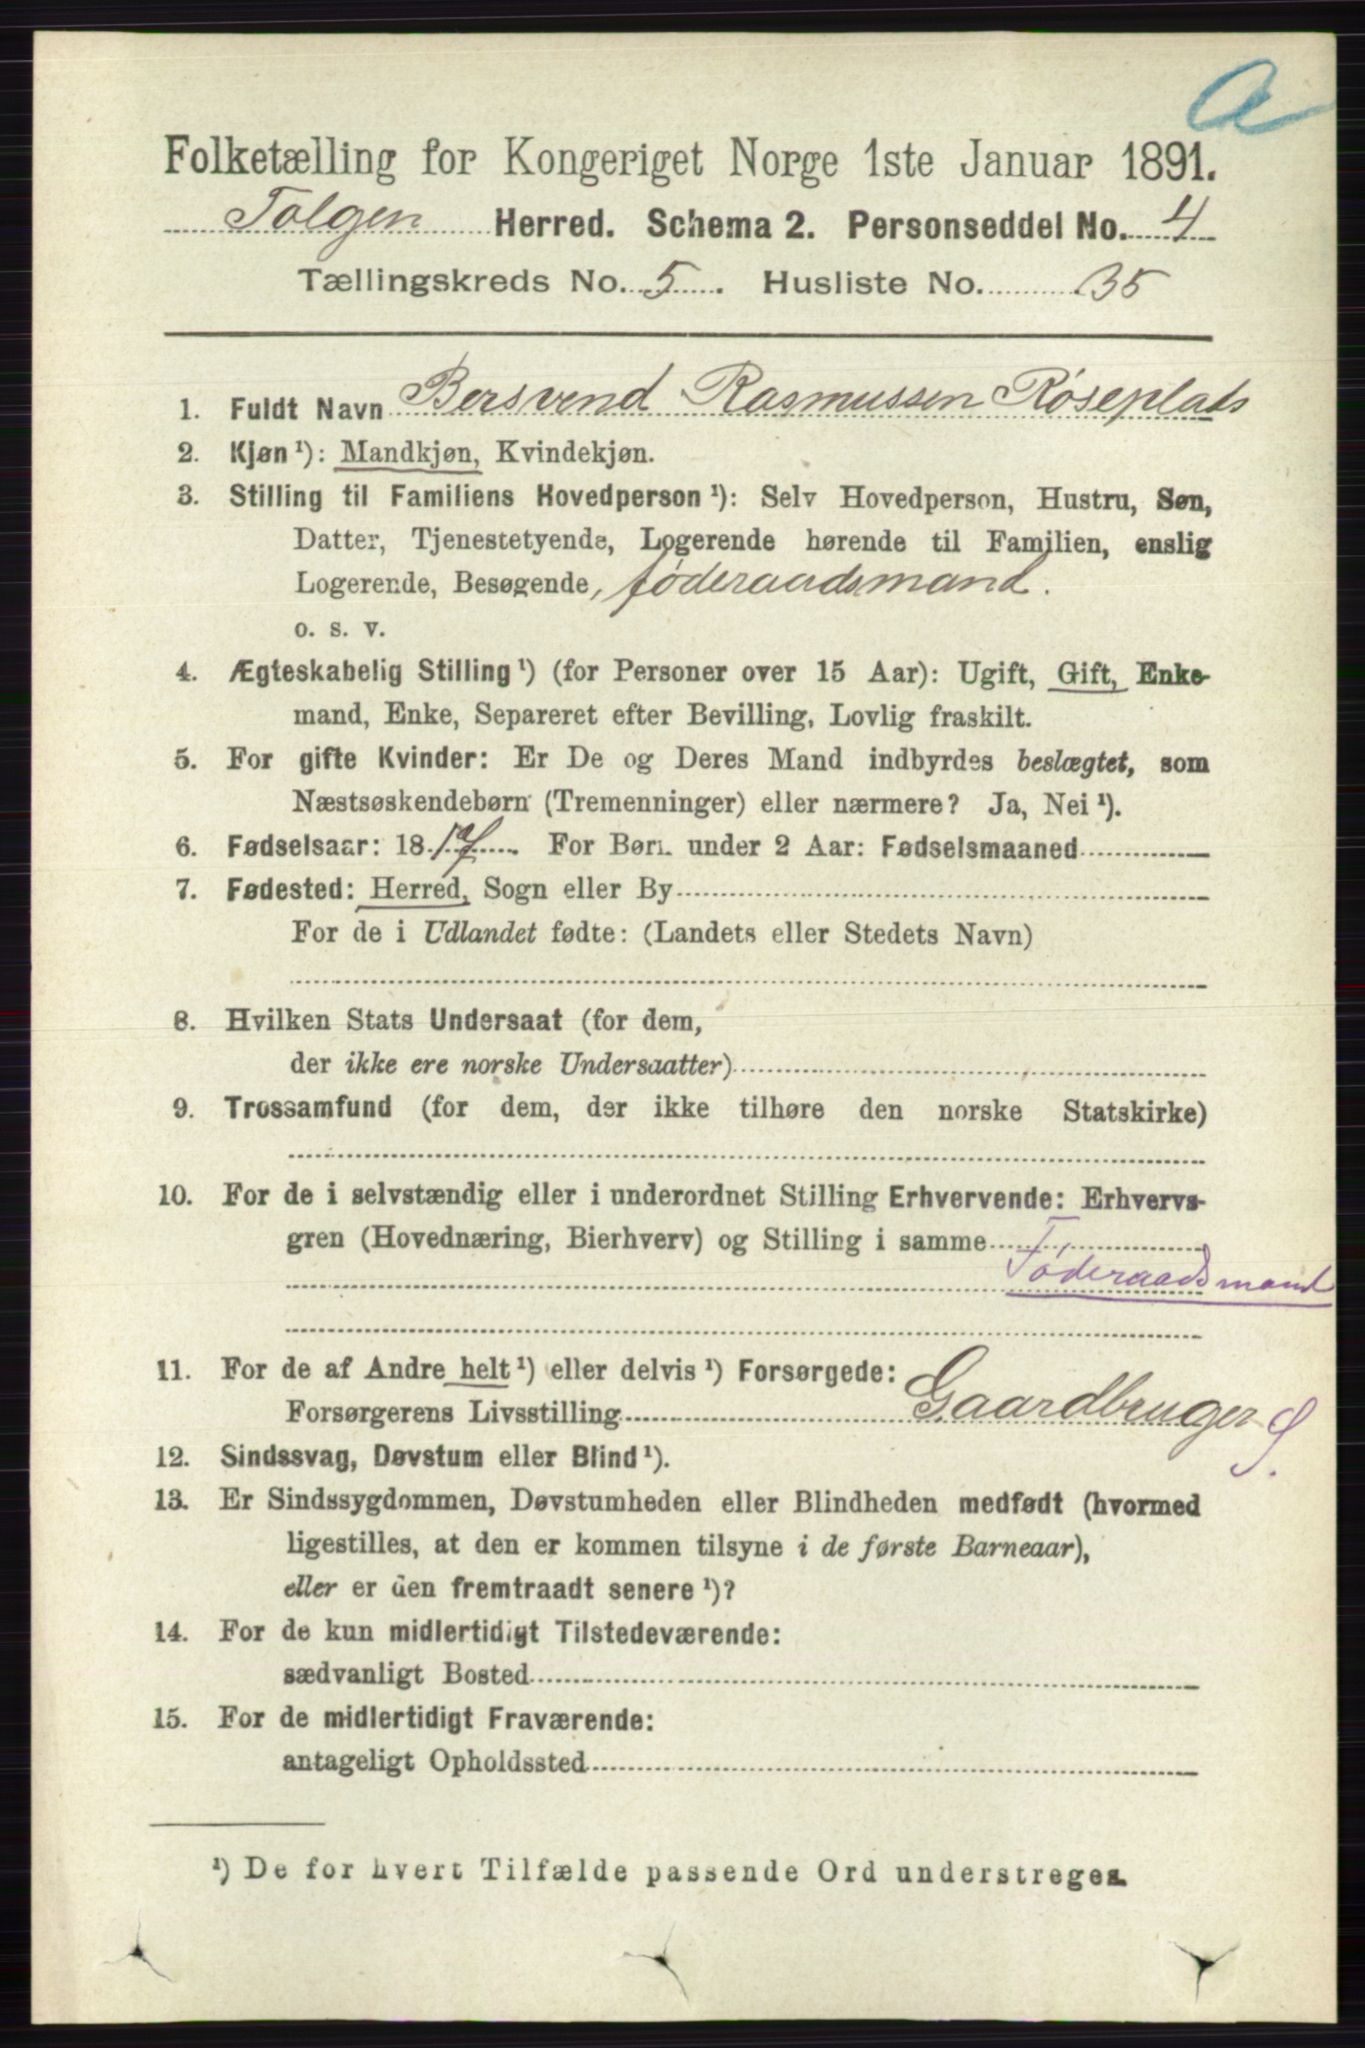 a
Folketælling for Kongeriget Norge 1ste Januar 1891.
Tolgen Herred. Schema 2. Personseddel No. 4
Tællingskreds No. 5. Husliste No. 35
1. Fuldt Navn Bersvend Rasmussen Røseplads
2. Kjøn ¹): Mandkjøn, Kvindekjøn.
3. Stilling til Familiens Hovedperson ¹): Selv Hovedperson, Hustru, Søn,
Datter, Tjenestetyende, Logerende hørende til Familien, enslig
Logerende, Besøgende, føderaadsmand.
o. s. v.
4. Ægteskabelig Stilling ¹) (for Personer over 15 Aar): Ugift, Gift, Enke-
mand, Enke, Separeret efter Bevilling, Lovlig fraskilt.
5. For gifte Kvinder: Er De og Deres Mand indbyrdes beslægtet, som
Næstsøskendebørn (Tremenninger) eller nærmere? Ja, Nei ¹).
6. Fødselsaar: 1817. For Børn under 2 Aar: Fødselsmaaned
7. Fødested: Herred, Sogn eller By
For de i Udlandet fødte: (Landets eller Stedets Navn)
8. Hvilken Stats Undersaat (for dem,
der ikke ere norske Undersaatter)
9. Trossamfund (for dem, der ikke tilhøre den norske Statskirke)
10. For de i selvstændig eller i underordnet Stilling Erhvervende: Erhvervs-
gren (Hovednæring, Bierhverv) og Stilling i samme
Føderaadsmand
11. For de af Andre helt ¹) eller delvis ¹) Forsørgede:
Forsørgerens Livsstilling Gaardbruger S.
12. Sindssvag, Døvstum eller Blind ¹).
13. Er Sindssygdommen, Døvstumheden eller Blindheden medfødt (hvormed
ligestilles, at den er kommen tilsyne i de første Barneaar),
eller er den fremtraadt senere ¹)?
14. For de kun midlertidigt Tilstedeværende:
sædvanligt Bosted
15. For de midlertidigt Fraværende:
antageligt Opholdssted
¹) De for hvert Tilfælde passende Ord understreges.